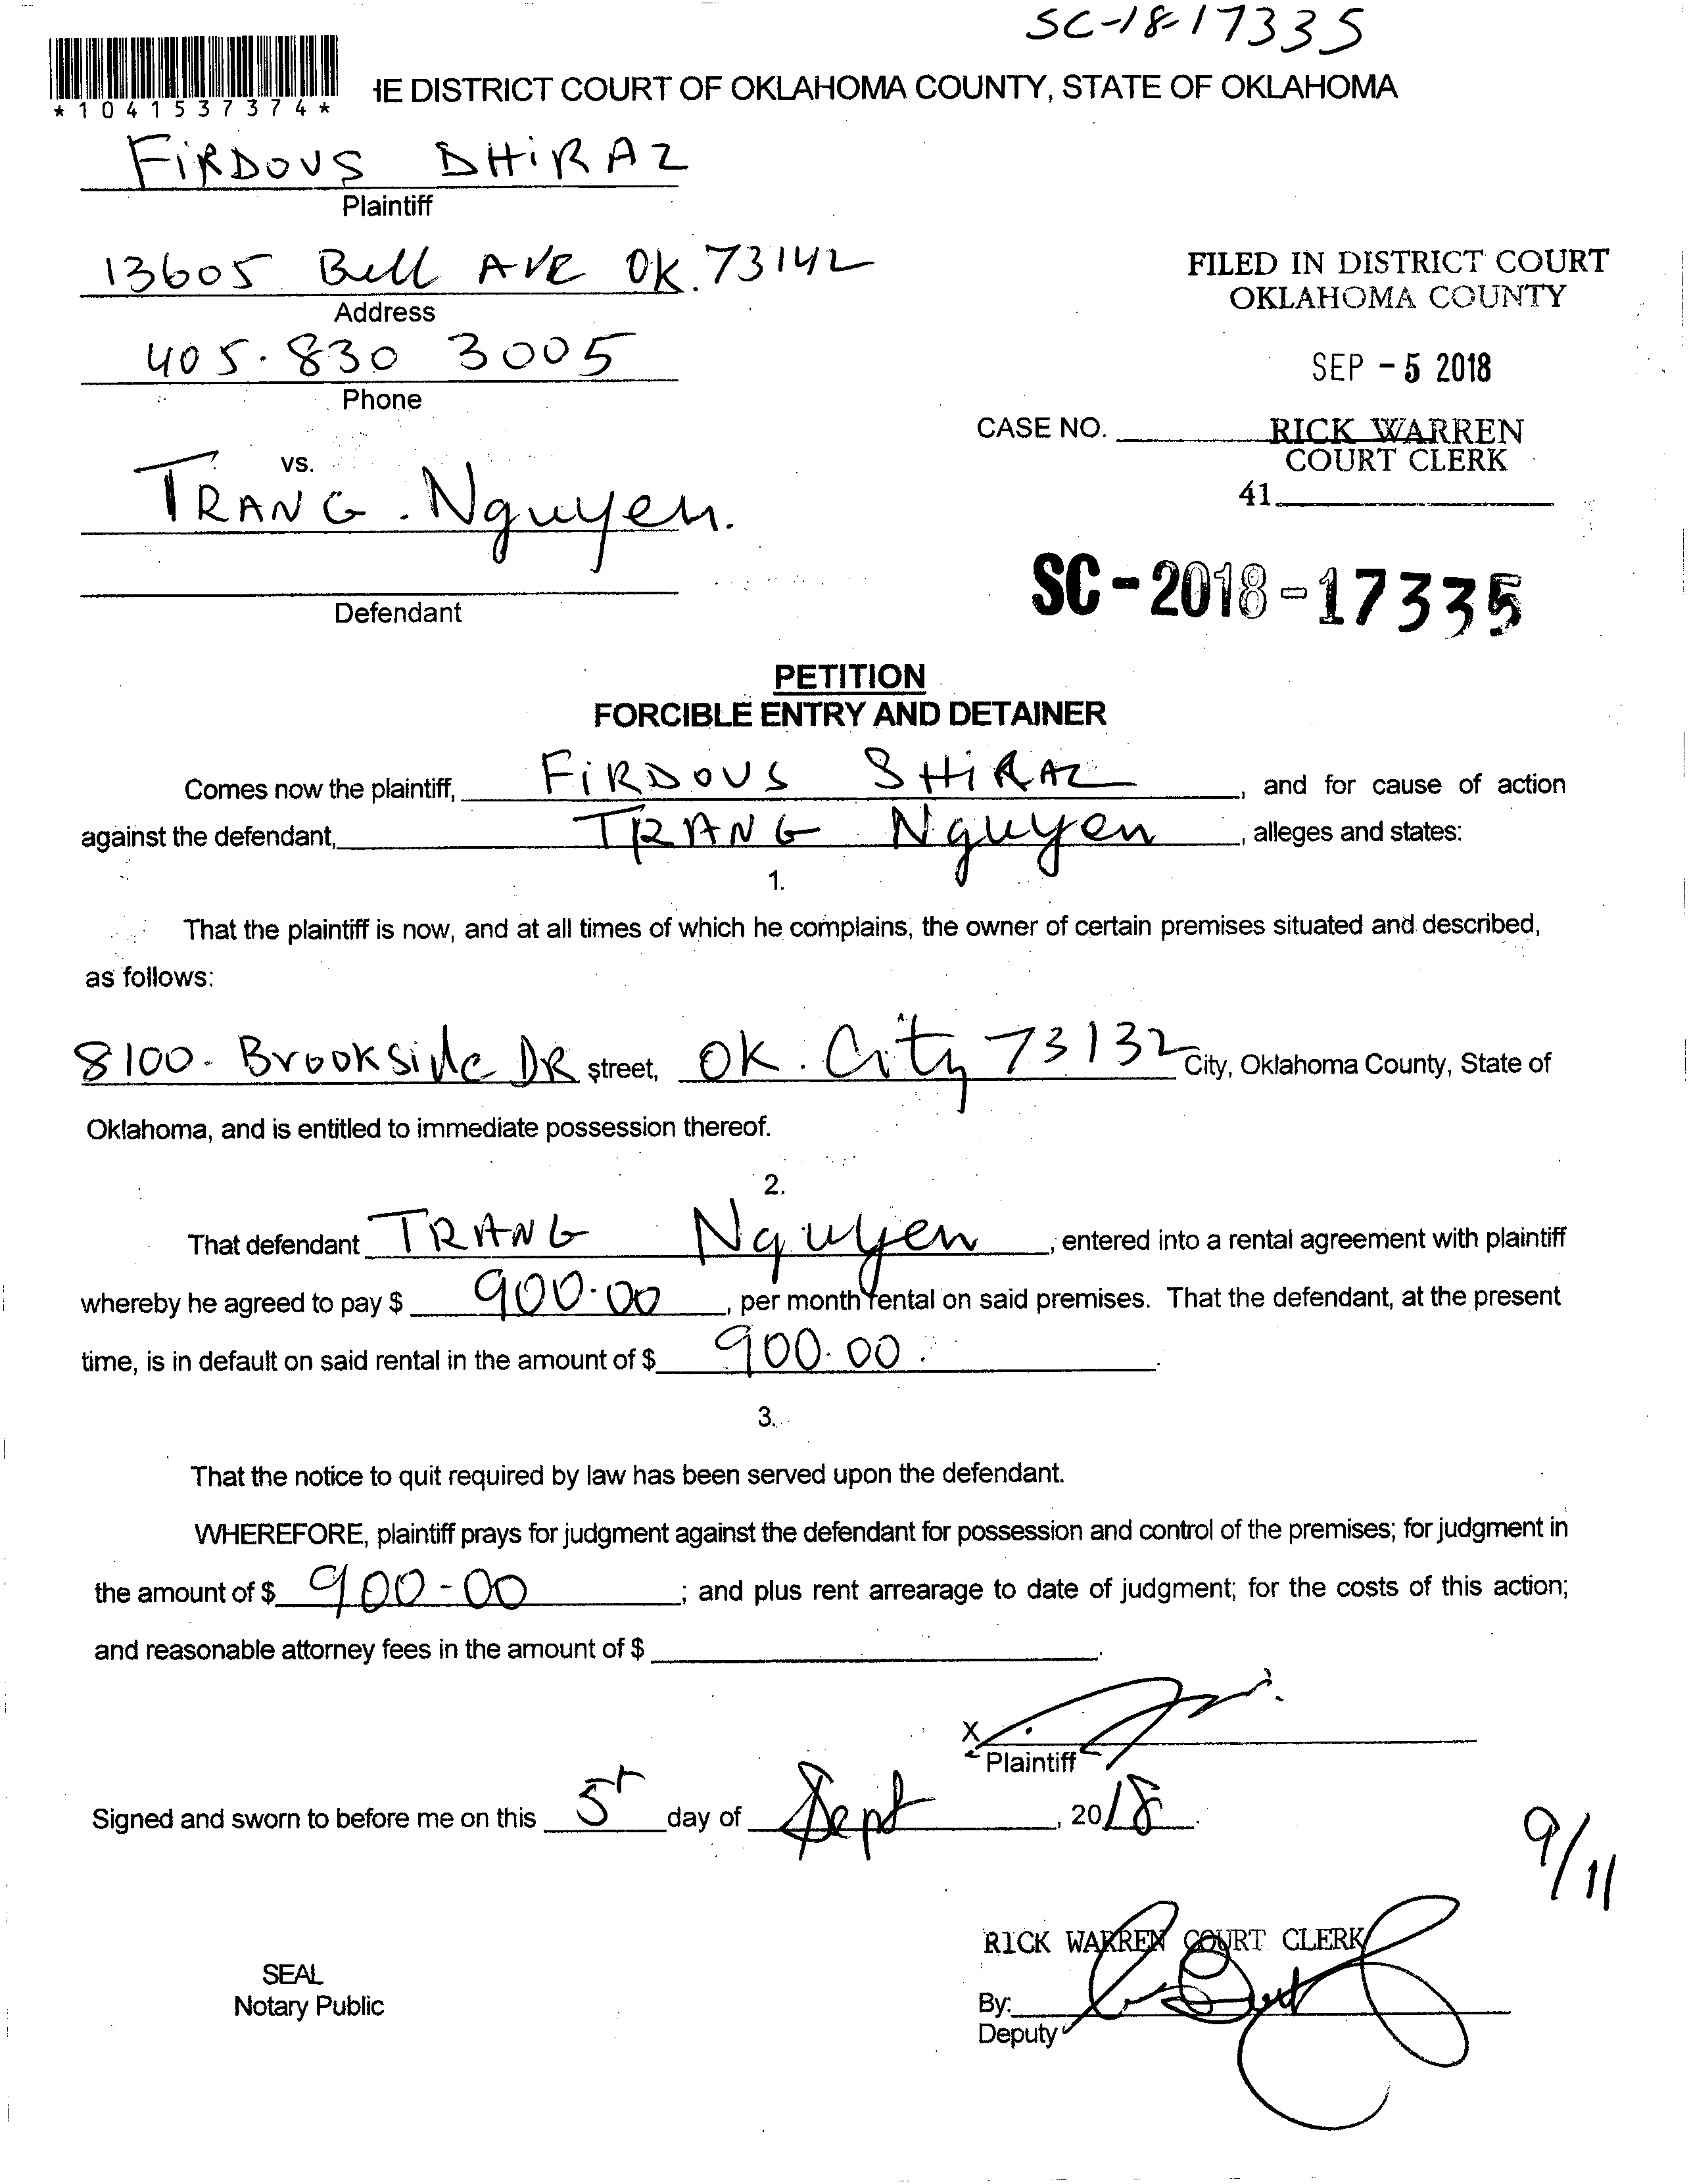 SC-18-17335
*1041537374*
IE DISTRICT COURT OF OKLAHOMA COUNTY, STATE OF OKLAHOMA
FiRDOUS DHiRAZ
Plaintiff
13605 Bell AVE OK. 73142
Address
FILED IN DISTRICT COURT
OKLAHOMA COUNTY
405. 830 3005
Phone
SEP - 5 2018
CASE NO.
RICK WARREN
COURT CLERK
41
vs.
TRANG. Nguyen.
Defendant
SC-2018-17335
PETITION
FORCIBLE ENTRY AND DETAINER
Comes now the plaintiff, FiRDOUS SHiRAZ, and for cause of action
against the defendant, TRANG Nguyen, alleges and states:
1.
That the plaintiff is now, and at all times of which he complains, the owner of certain premises situated and described,
as follows:
8100. Brookside DR street, OK. City 73132 City, Oklahoma County, State of
Oklahoma, and is entitled to immediate possession thereof.
2.
That defendant TRANG Nguyen, entered into a rental agreement with plaintiff
whereby he agreed to pay $ 900.00, per month rental on said premises. That the defendant, at the present
time, is in default on said rental in the amount of $ 900.00.
3.
That the notice to quit required by law has been served upon the defendant.
WHEREFORE, plaintiff prays for judgment against the defendant for possession and control of the premises; for judgment in
the amount of $ 900-00; and plus rent arrearage to date of judgment; for the costs of this action;
and reasonable attorney fees in the amount of $.
X
Plaintiff
Signed and sworn to before me on this 5th day of Sept, 2018.
9/11
RICK WARREN COURT CLERK
SEAL
Notary Public
By:
Deputy